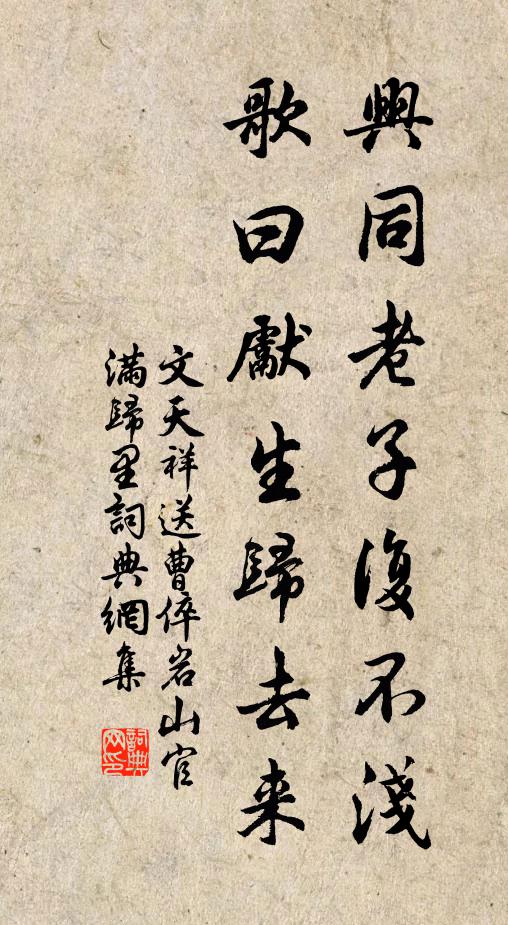 興同老子復不淺
歌曰獻生歸去来
文天祥送曹倅岩山官
滿歸里詞典網集
詞典网印